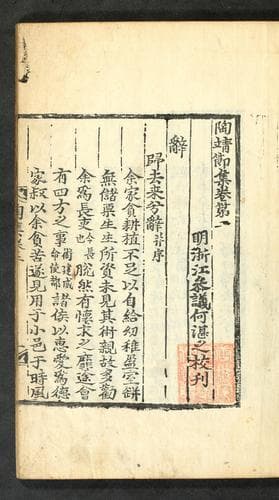 陶靖節集卷第一
明浙江叅議何湛之校刊
辭
歸去來兮辭 并序
余家貧耕植不足以自給幼稚盈室缾
無儲粟生生所資未見其術親故多勸
余爲長吏 脫然有懷求之靡途會
有四方之事 諸侯以惠愛爲德
家叔以余貧苦遂見用于小邑于時風